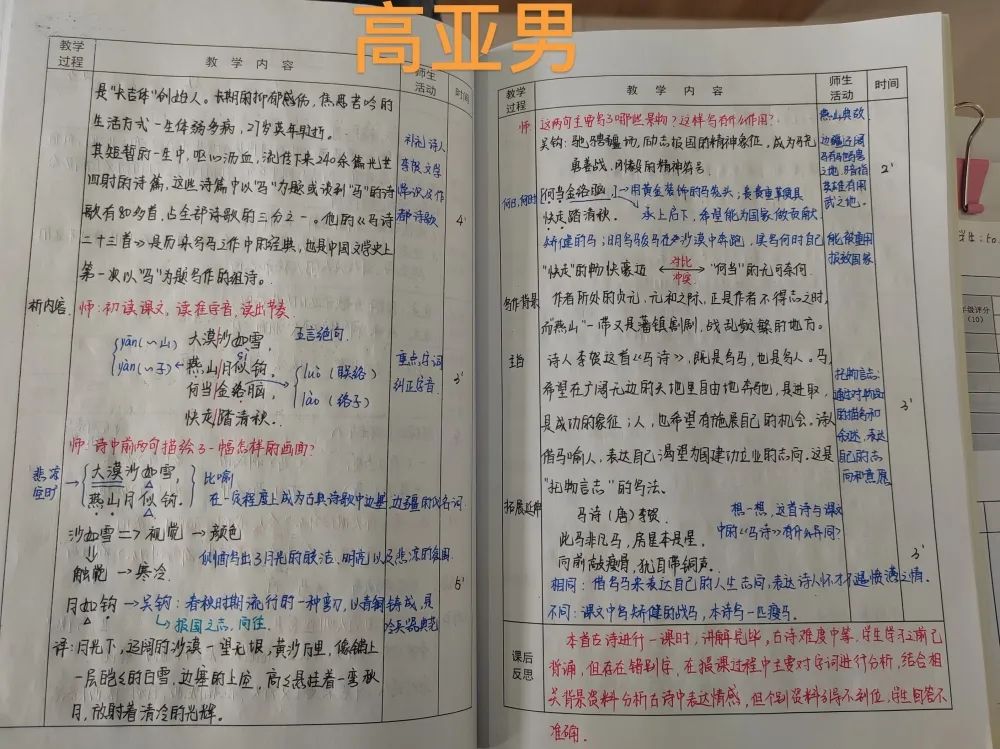 高亚男
教学过程 教学内容 师生活动 时间
是"长吉体"创始人。长期的抑郁感伤，焦思苦吟的
生活方式一生体弱多病，27岁英年早逝。
其短暂的一生中，呕心沥血，流传下来240余篇光芒
四射的诗篇，这些诗篇中以"马"为题或谈到"马"的诗
歌有80多首，占全部诗歌的三分之一。他的《马诗
二十三首》是历来写马之作中的经典，也是中国文学史上
第一次以"马"为题写作的组诗。
补充诗人
李贺文学
常识及作
都诗歌
4'
析内容 师：初读课文，读准字音，读出节奏
yān(~山) 大漠/沙如雪， 五言绝句.
yàn(~子) 燕山/月似钩。
何当/金络脑， luò（联络）
lào（络子）
快走/踏清秋。
重点字词
纠正字音
3'
师：诗中前两句描绘了一幅怎样的画面？
悲凉 大漠沙如雪， 比喻
空旷 燕山月似钩. 在一定程度上成为古典诗歌中边塞、边疆的代名词
沙如雪 => 视觉 → 颜色
侧面写出了月光的皎洁、明亮以及悲凉的氛围
触觉 → 寒冷.
5'
月如钩 → 吴钩：春秋时期流行的一种弯刀，以青铜铸成，是
报国之志，向往 冷兵器典范
译：月光下，辽阔的沙漠一望无垠，黄沙万里，像铺上
一层皑皑的白雪，边塞的上空，高高悬挂着一弯秋
月，放射着清冷的光辉。
教学过程 教学内容 师生活动 时间
师：这两句主要写了哪些景物？这样写有什么作用？
吴钩：驰骋疆场，励志报国的精神象征，成为骁
勇善战、刚毅的精神符号
燕山典故
边疆辽阔
2'
何日,何时 何当金络脑 → 用黄金装饰的马笼头；贵重鞍具
快走踏清秋. 承上启下，希望能为国家做贡献
矫健的马；明写骏马在沙漠中奔跑，实写何时自己 能被重用
报效国家
"快走"的畅快豪迈 对比 "何当"的无可奈何.
冲突
写作背景 作者所处的贞元、元和之际，正是作者不得志之时，
而"燕山"一带又是藩镇割剧，战乱频繁的地方。
主旨 诗人李贺这首《马诗》，既是写马，也是写人。马，
希望在广阔无边的天地里自由地奔驰，是进取，
是成功的象征；人，也希望有施展自己的机会。诗人
借马喻人，表达自己渴望为国建功立业的志向。这是
"托物言志"的写法.
托物言志：
通过对物品
的描写和
叙述，表达
自己的志
向和意愿
3'
拓展延伸 马诗（唐）李贺 想一想，这首诗与课文
此马非凡马，房星本是星. 中的《马诗》有什么异同？
向前敲瘦骨，犹自带铜声.
3'
相同：借写马来表达自己的人生志向，表达诗人怀才不遇愤懑之情.
不同：课文中写矫健的战马，本诗写一匹瘦马.
课后反思
本首古诗进行一课时，讲解完毕，古诗难度中等，学生学习之前已
背诵，但存在错别字，在授课过程中主要对字词进行分析，结合相
关背景资料分析古诗中表达情感，但个别资料引导不到位，学生回答不
准确.